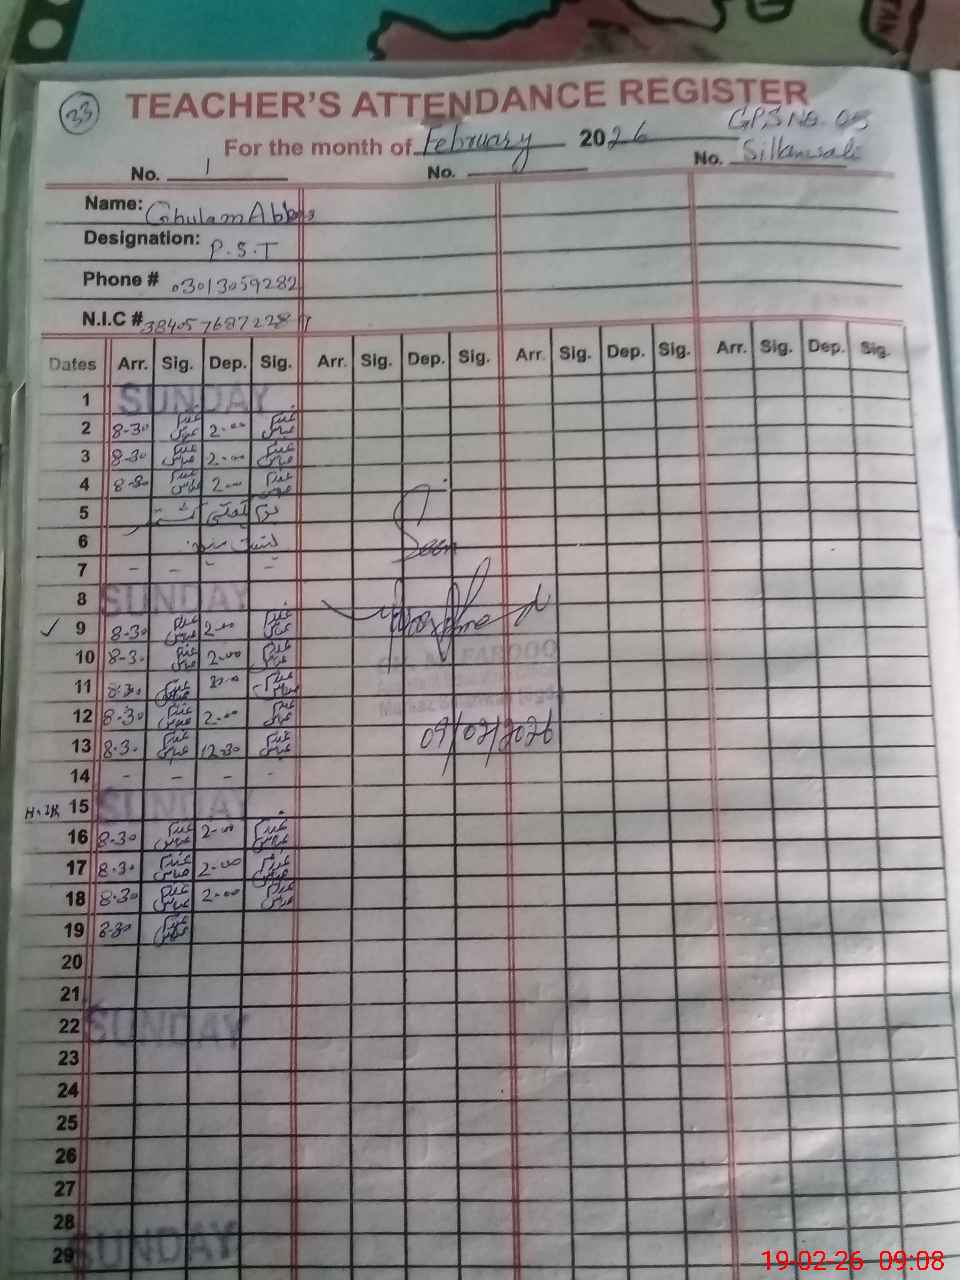 33
TEACHER'S ATTENDANCE REGISTER
For the month of February 2026
GPS No. 05
No. 1 No. No. Sillanwali
Name: Ghulam Abbas
Designation: P.S.T
Phone # 03013059282
N.I.C # 3840576872289
Dates Arr. Sig. Dep. Sig. Arr. Sig. Dep. Sig. Arr. Sig. Dep. Sig. Arr. Sig. Dep. Sig.
1 SUNDAY
2 8-30 غلام عباس 2-00 غلام عباس
3 8-30 غلام عباس 2-00 غلام عباس
4 8-30 غلام عباس 2-00 غلام عباس
5
6
Seen
7 - - - -
8 SUNDAY
9 8-30 غلام عباس 2-00 غلام عباس
10 8-30 غلام عباس 2-00 غلام عباس
FAROOQ
11 8-30 غلام عباس غلام عباس
12 8-30 غلام عباس 2-00 غلام عباس
13 8-30 غلام عباس 12-30 غلام عباس
09/02/2026
14 - - - -
15 SUNDAY
16 8-30 غلام عباس 2-00 غلام عباس
17 8-30 غلام عباس 2-00 غلام عباس
18 8-30 غلام عباس 2-00 غلام عباس
19 8-30 غلام عباس
20
21
22 SUNDAY
23
24
25
26
27
28
29 SUNDAY
19-02-26 09:08